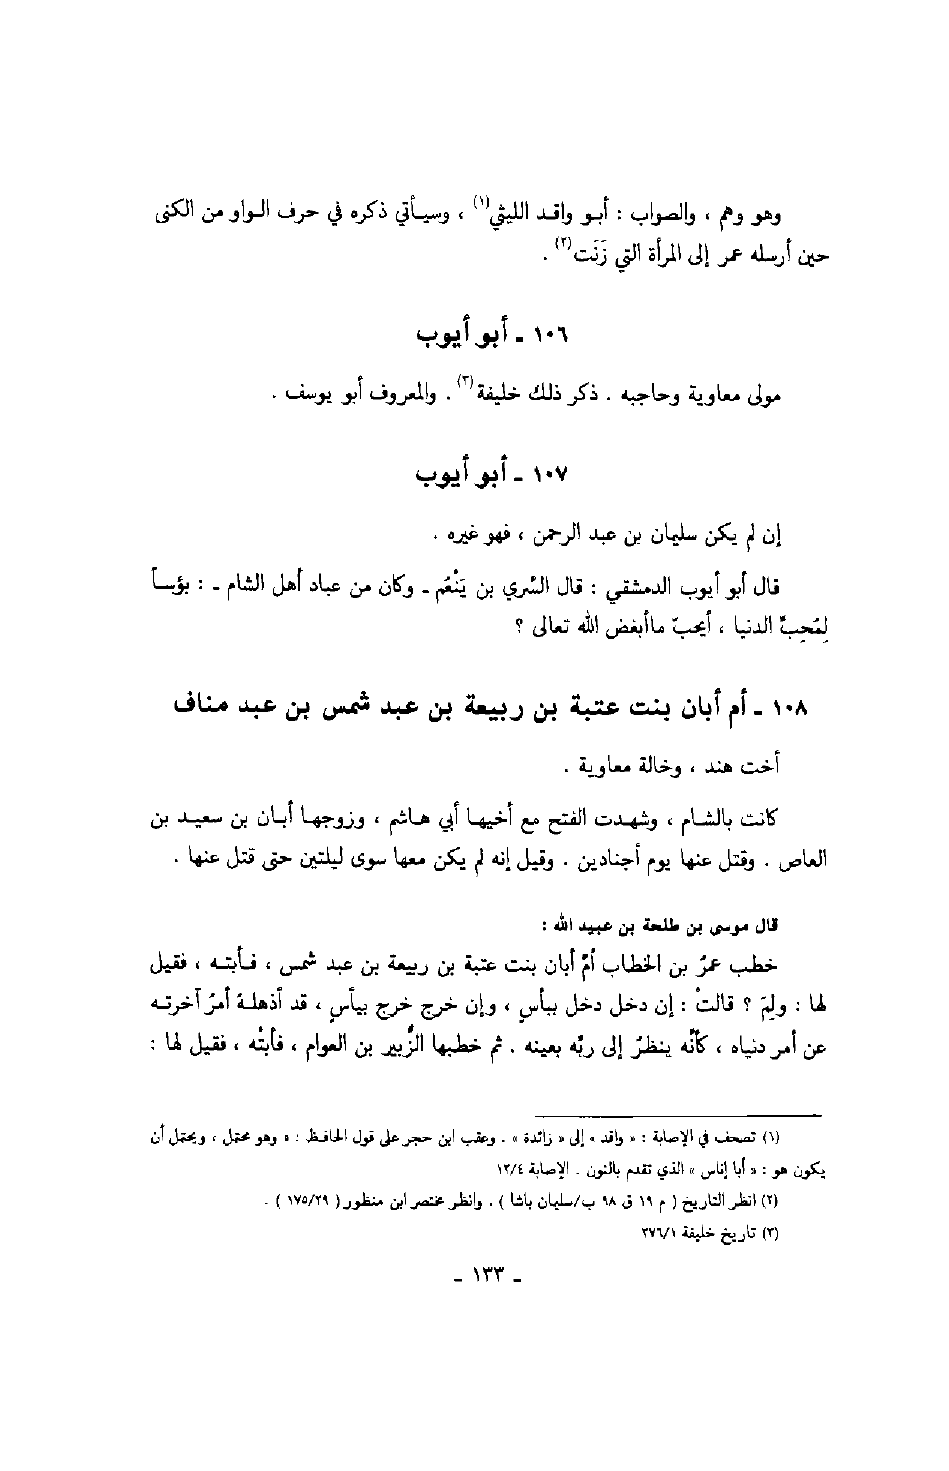 وهو وهم ، والصواب : أبو واقد الليثي(١) ، وسيأتي ذكره في حرف الواو من الكنى
حين أرسله عمر إلى المرأة التي زَنَت(٢) .
١٠٦ ـ أبو أيوب
مولى معاوية وحاجبه . ذكر ذلك خليفة(٣) . والمعروف أبو يوسف .
١٠٧ ـ أبو أيوب
إن لم يكن سليمان بن عبد الرحمن ، فهو غيره .
قال أبو أيوب الدمشقي : قال السَّري بن يَنْعُم ـ وكان من عباد أهل الشام ـ : بؤساً
لِمُحِبِّ الدنيا ، أيحبّ ماأبغض الله تعالى ؟
١٠٨ ـ أم أبان بنت عتبة بن ربيعة بن عبد شمس بن عبد مناف
أخت هند ، وخالة معاوية .
كانت بالشام ، وشهدت الفتح مع أخيها أبي هاشم ، وزوجها أبان بن سعيد بن
العاص . وقتل عنها يوم أجنادين . وقيل إنه لم يكن معها سوى ليلتين حتى قتل عنها .
قال موسى بن طلحة بن عبيد الله :
خطب عمرُ بن الخطاب أمَّ أبان بنت عتبة بن ربيعة بن عبد شمس ، فأبته ، فقيل
لها : ولِمَ ؟ قالتْ : إن دخل دخل ببأسٍ ، وإن خرج خرج بيأسٍ ، قد أذهلهُ أمرُ آخرته
عن أمر دنياه ، كأنّه ينظرُ إلى ربّه بعينه . ثم خطبها الزُّبير بن العوام ، فأبتْه ، فقيل لها :
(١) تصحف في الإصابة : « واقد » إلى « زائدة » . وعقب ابن حجر على قول الحافظ : « وهو محتمل ، ويحتمل أن
يكون هو : « أبا إناس » الذي تقدم بالنون . الإصابة ١٢/٤
(٢) انظر التاريخ ( م ١٩ ق ٩٨ ب/سليمان باشا ) . وانظر مختصر ابن منظور ( ١٧٥/٢٩ ) .
(٣) تاريخ خليفة ٢٧٦/١
ـ ١٣٣ ـ